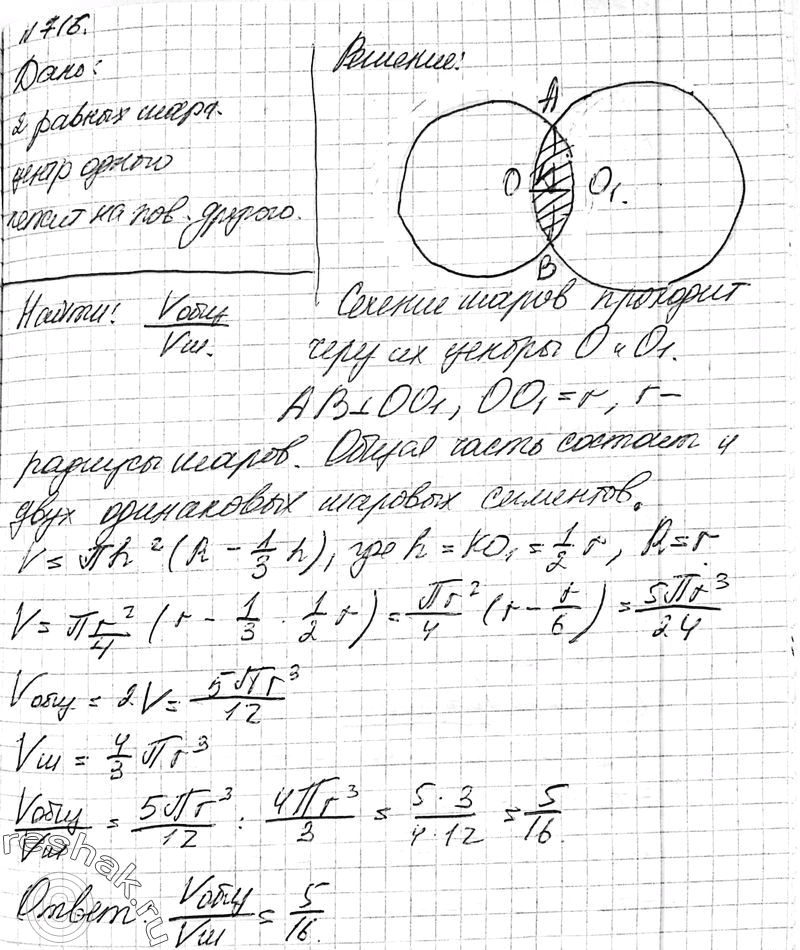 №716.
Дано:
2 равных шара.
центр одного
лежит на пов. другого.
Решение:
A
O K O₁.
B
Найти: Vобщ/Vш.
Сечение шаров проходит
через их центры O и O₁.
AB⊥OO₁, OO₁ = r, r –
радиусы шаров. Общая часть состоит из
двух одинаковых шаровых сегментов.
V = πh²(R – 1/3 h), где h = KO₁ = 1/2 r, R = r
V = π r²/4 (r – 1/3 · 1/2 r) = πr²/4 (r – r/6) = 5πr³/24
Vобщ = 2V = 5πr³/12
Vш = 4/3 πr³
Vобщ/Vш = 5πr³/12 : 4πr³/3 = 5·3/4·12 = 5/16.
Ответ: Vобщ/Vш = 5/16.
reshak.ru